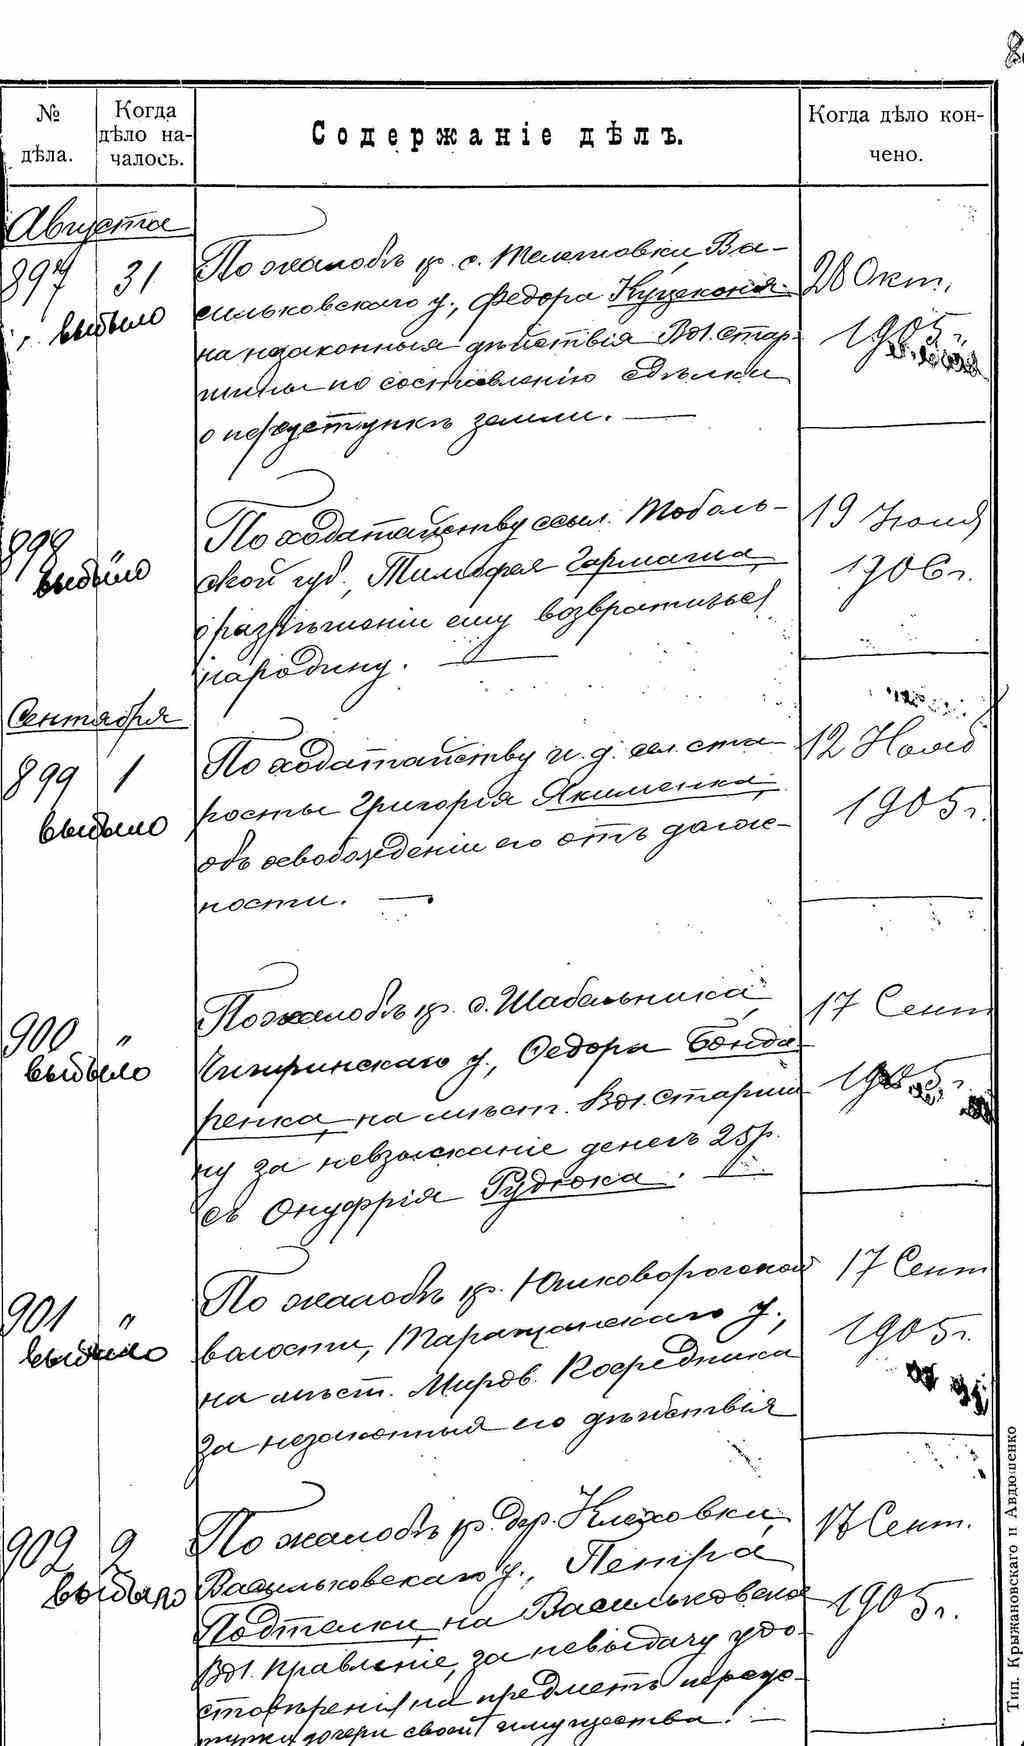 № дѣла.
Когда дѣло началось.
Содержаніе дѣлъ.
Когда дѣло кончено.
Августа
897 31
выбыло
По жалобѣ кр. с. Ва-
сильковскаго у., Федора
на незаконныя дѣйствія Вол. стар-
шины по составленію сдѣлки
о переуступкѣ земли. —
28 Окт.
1905 г.
898 "
выбыло
По ходатайству ссыл. Тоболь-
ской губ., Тимофея Гармаша,
о разрѣшеніи ему возвратиться
на родину. —
19 Іюля
1906 г.
Сентября
899 1
выбыло
По ходатайству и. д. сел. ста-
росты Григорія Якименка,
объ освобожденіи его отъ долж-
ности. —
12 Нояб
1905 г.
900 "
выбыло
По жалобѣ кр. с. Шабельника,
Чигиринскаго у., Федора Бонда-
ренка, на мѣст. Вол. старши-
ну за невзысканіе денегъ 25 р.
съ Онуфрія Рудюка. —
17 Сент
1905 г.
901 "
выбыло
По жалобѣ кр. Юшковорогской
волости, Таращанскаго у.,
на мѣст. Миров. Посредника
за незаконныя его дѣйствія
17 Сент
1905 г.
902 2
выбыло
По жалобѣ кр. дер. Клеховки,
Васильковскаго у., Петра
на Васильковское
Вол. Правленіе, за невыдачу удо-
стовѣренія на предметъ переус-
тупки дочери своей имущества. —
Сент.
1905 г.
Тип. Крыжановскаго и Авдюшенко